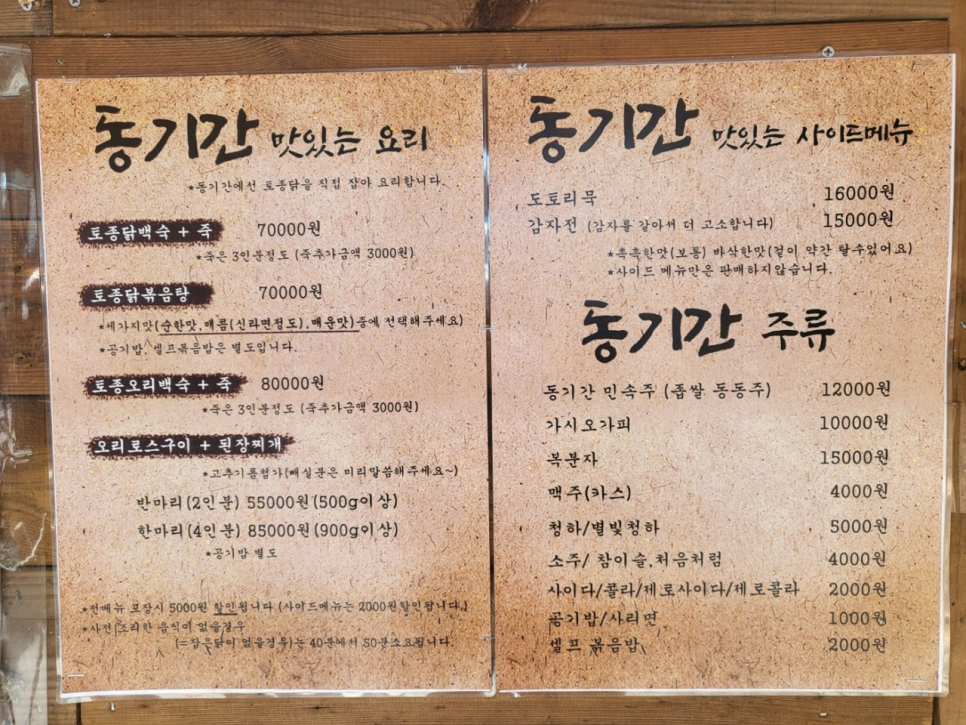 동기간 맛있는 요리
*동기간에선 토종닭을 직접 잡아 요리합니다.
토종닭백숙 + 죽 70000원
*죽은 3인분정도 (죽추가금액 3000원)
토종닭볶음탕 70000원
*세가지맛(순한맛,매콤(신라면정도),매운맛)중에 선택해주세요)
*공기밥, 셀프볶음밥은 별도입니다.
토종오리백숙 + 죽 80000원
*죽은 3인분정도 (죽추가금액 3000원)
오리로스구이 + 된장찌개
*고추기름첨가(빼실분은 미리말씀해주세요~)
반마리(2인분) 55000원(500g이상)
한마리(4인분) 85000원(900g이상)
*공기밥 별도
*전메뉴 포장시 5000원 할인됩니다 (사이드메뉴는 2000원할인됩니다.)
*사전 조리한 음식이 없을경우
(=잡은닭이 없을경우)는 40분에서 50분소요됩니다.
동기간 맛있는 사이드메뉴
도토리묵 16000원
감자전 (감자를 갈아서 더 고소합니다) 15000원
*촉촉한맛(보통) 바삭한맛(겉이 약간 탈수있어요)
*사이드 메뉴만은 판매하지않습니다.
동기간 주류
동기간 민속주 (좁쌀 동동주) 12000원
가시오가피 10000원
복분자 15000원
맥주(카스) 4000원
청하/별빛청하 5000원
소주/ 참이슬,처음처럼 4000원
사이다/콜라/제로사이다/제로콜라 2000원
공기밥/사리면 1000원
셀프 볶음밥 2000원